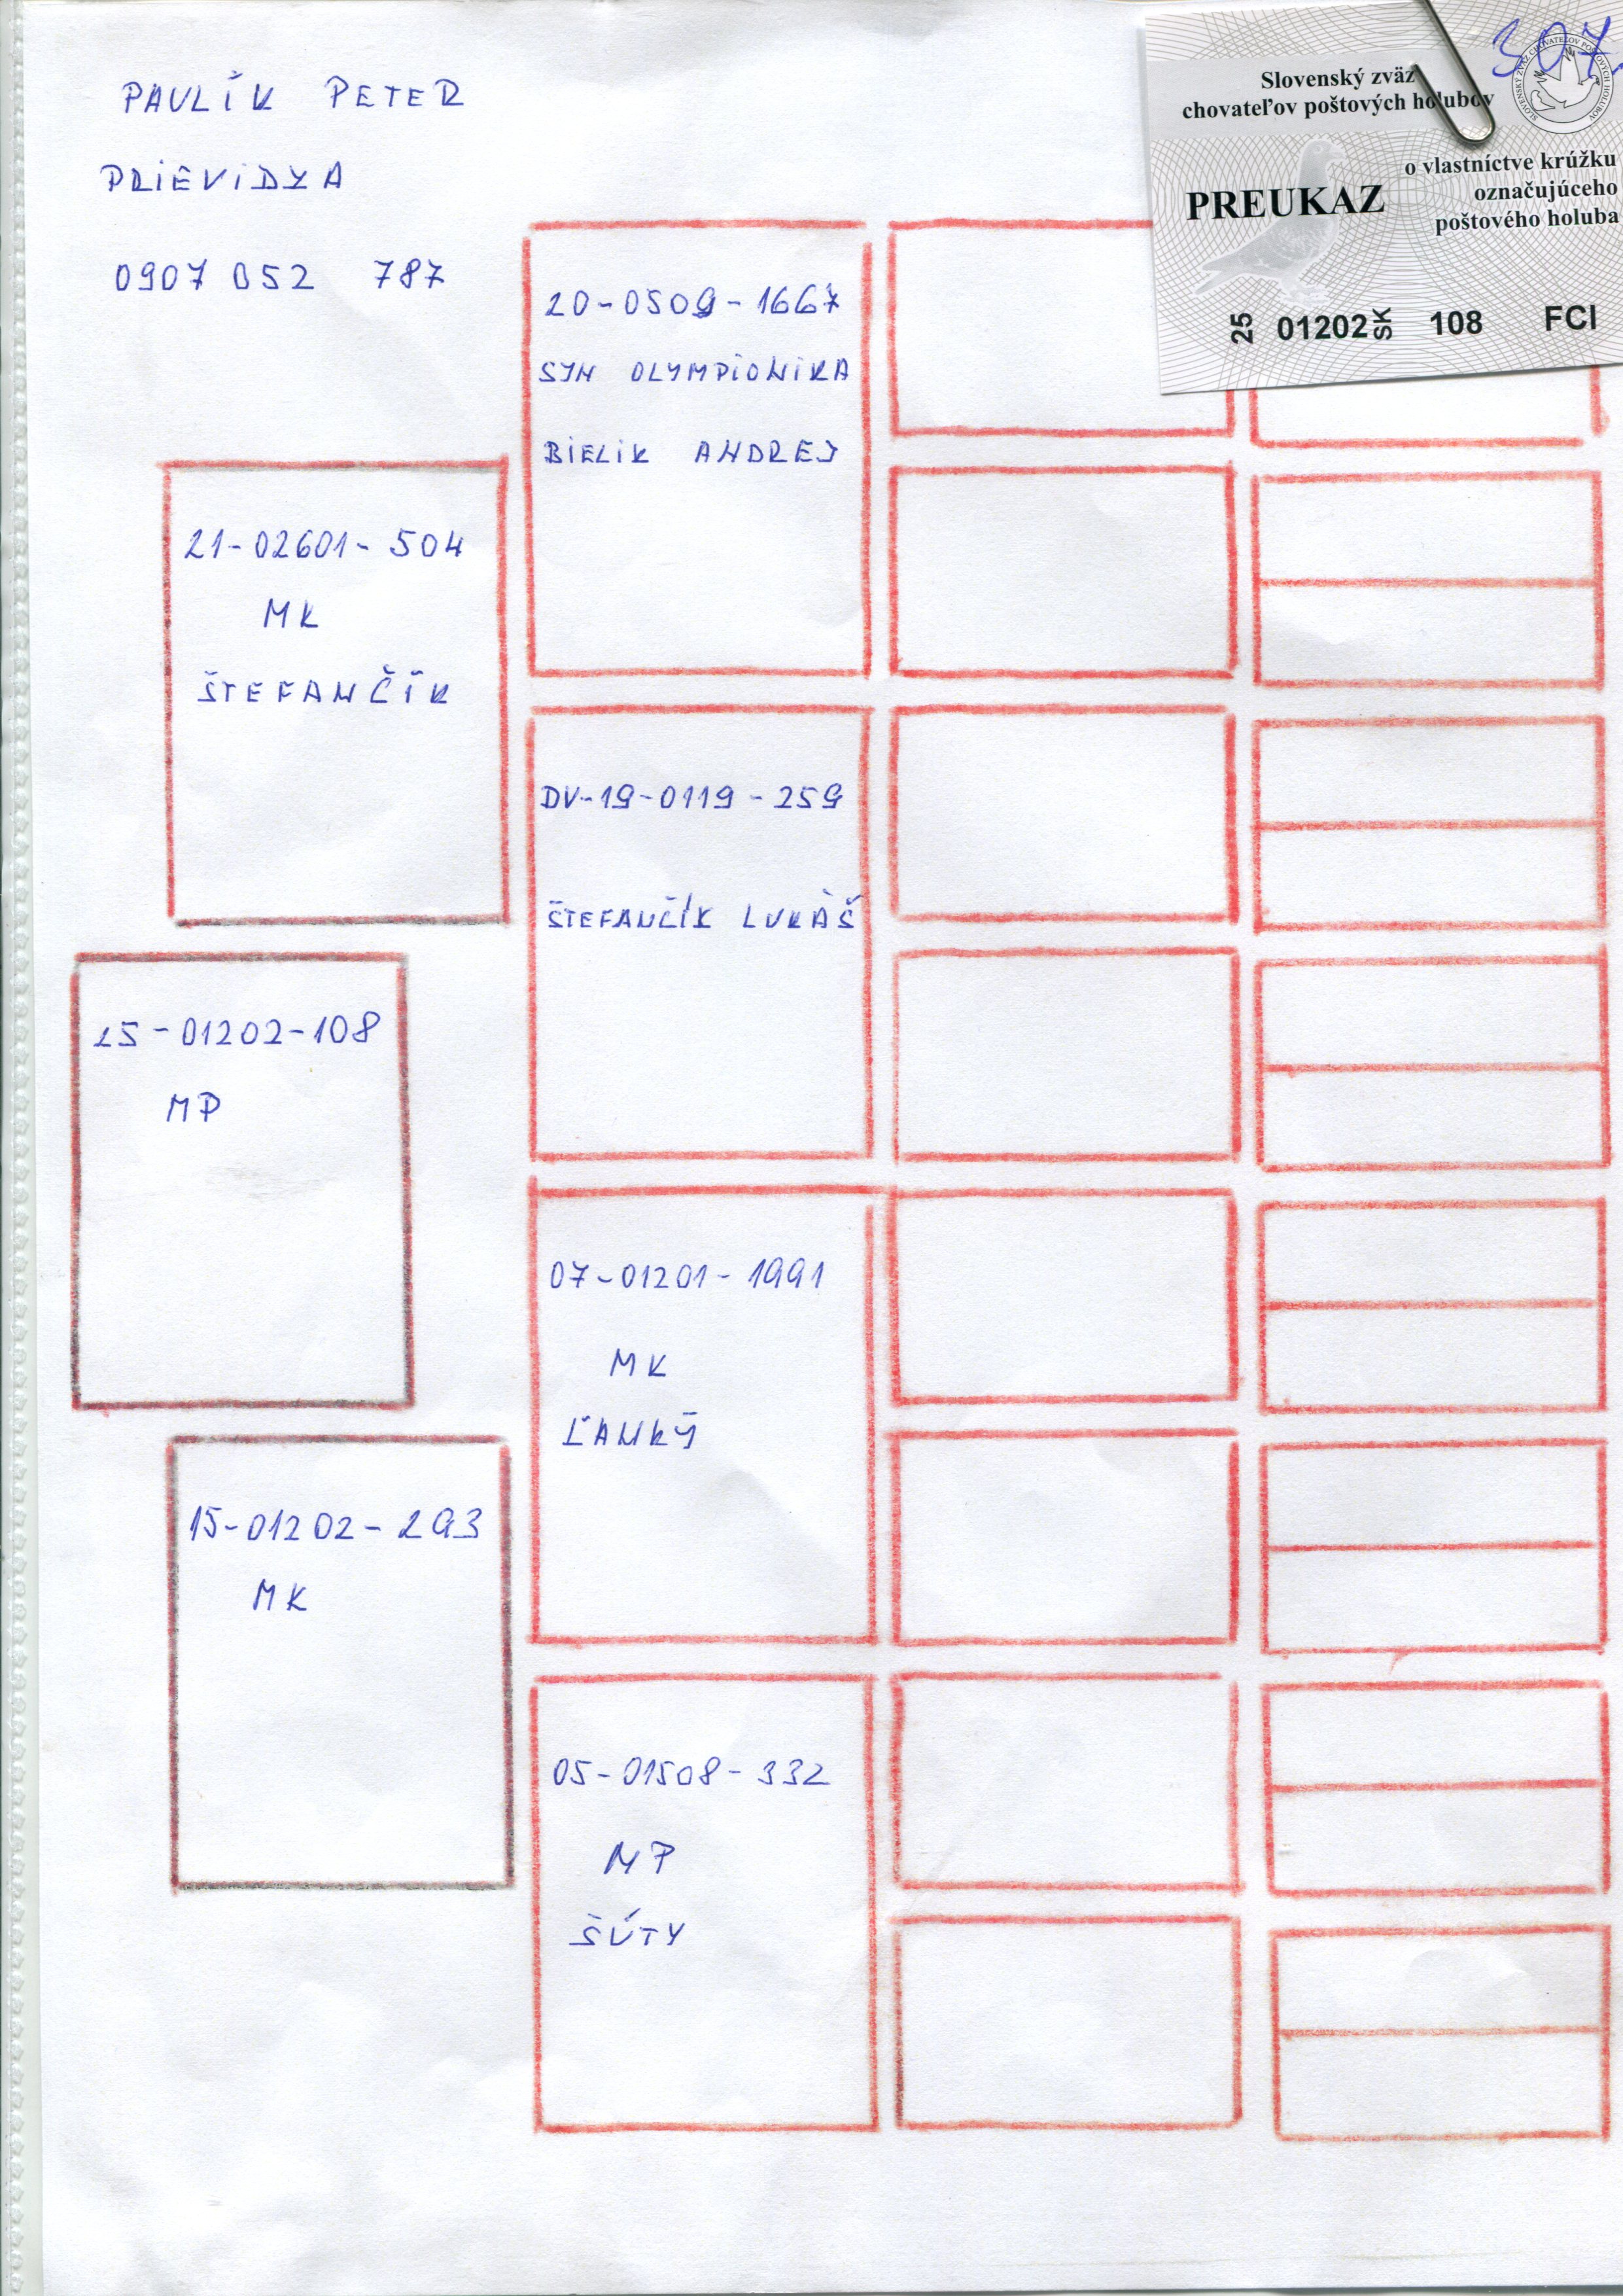 PAVLÍK PETER
PRIEVIDZA
0907 052 787
307.
Slovenský zväz
chovateľov poštových holubov
SLOVENSKÝ ZVÄZ CHOVATEĽOV POŠTOVÝCH HOLUBOV
PREUKAZ
o vlastníctve krúžku
označujúceho
poštového holuba
25 01202 SK 108 FCI
20-0509-1667
SYN OLYMPIONIKA
BIELIK ANDREJ
21-02601-504
MK
ŠTEFANČÍK
DV-19-0119-259
ŠTEFANČÍK LUKÁŠ
25-01202-108
MP
07-01201-1991
MK
ĽANKÝ
15-01202-293
MK
05-01508-332
MP
ŠÚTY